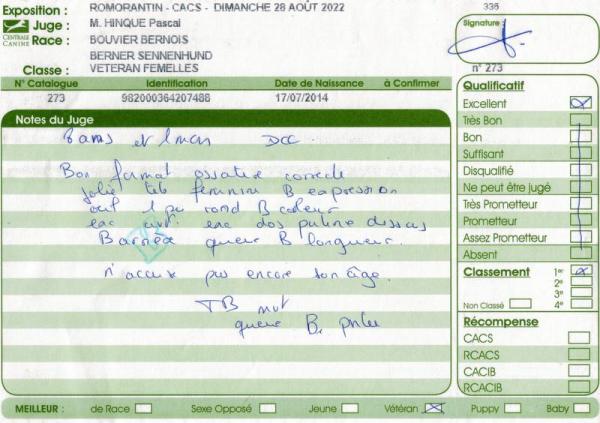 Exposition : ROMORANTIN - CACS - DIMANCHE 28 AOÛT 2022
CENTRALE CANINE
Juge : M. HINQUE Pascal
Race : BOUVIER BERNOIS
BERNER SENNENHUND
Classe : VETERAN FEMELLES
336
Signature :
n° 273
N° Catalogue Identification Date de Naissance à Confirmer
273 982000364207488 17/07/2014
Notes du Juge
8 ans et 1 mois DCC
Bon format ossature correcte
jolie tete feminine B expression
oeil 1 peu rond B couleur
enc dos poitrine
B arrière queue B longueur.
n'accuse pas encore son âge.
TB mvt
queue B. portée
Qualificatif
Excellent
Très Bon
Bon
Suffisant
Disqualifié
Ne peut être jugé
Très Prometteur
Prometteur
Assez Prometteur
Absent
Classement 1er
2e
3e
Non Classé 4e
Récompense
CACS
RCACS
CACIB
RCACIB
MEILLEUR : de Race Sexe Opposé Jeune Vétéran Puppy Baby